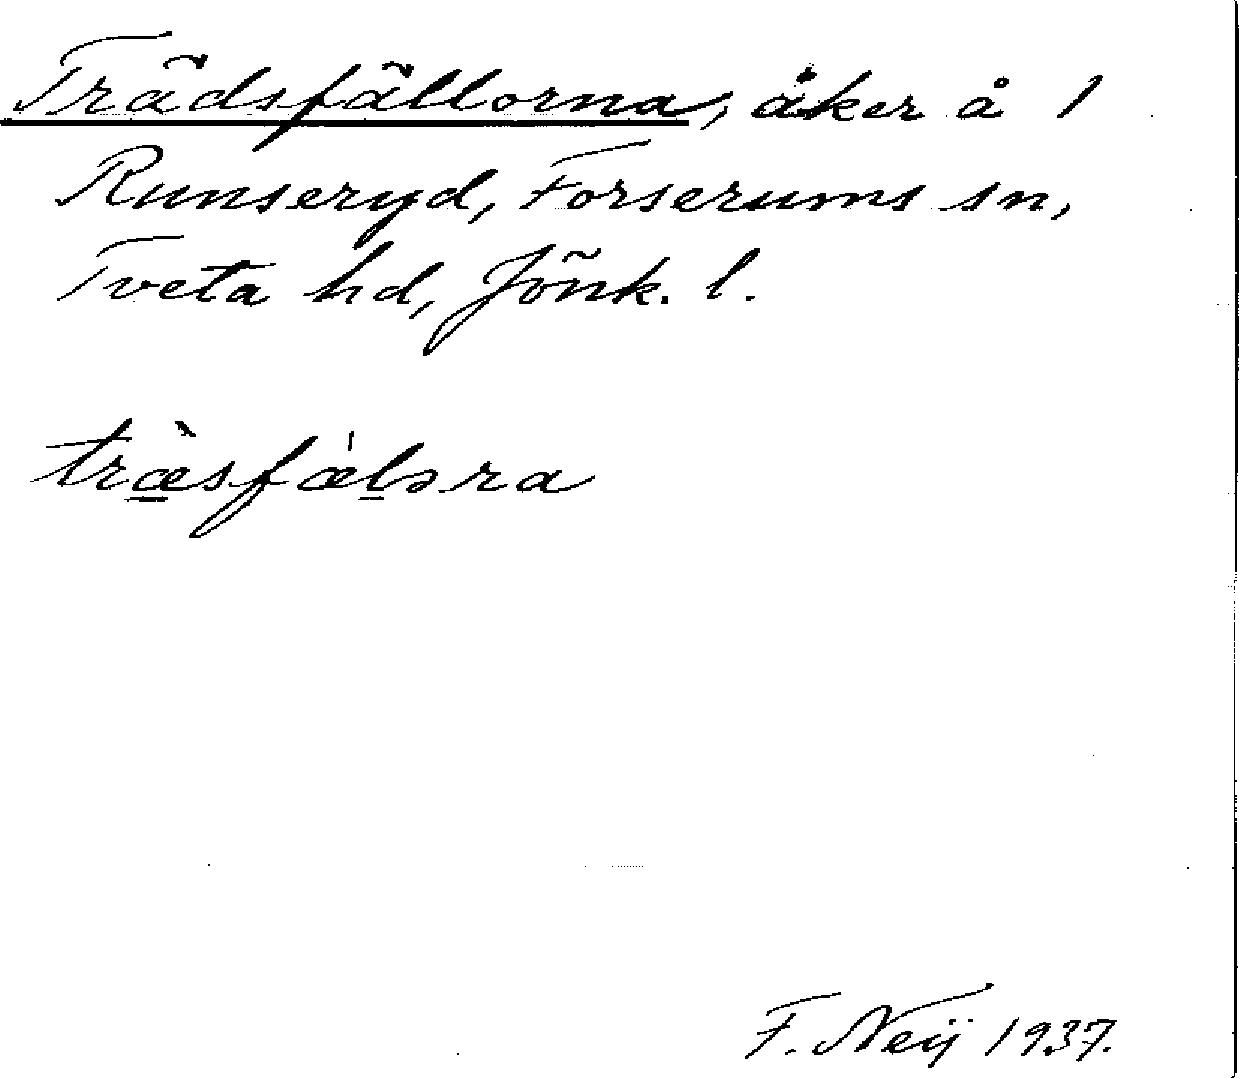 Trädsfällorna, åker å 1
Runseryd, Forserums sn,
Tveta hd, Jönk. l.
træ̀sfæ̍lǝra
F. Neij 1937.